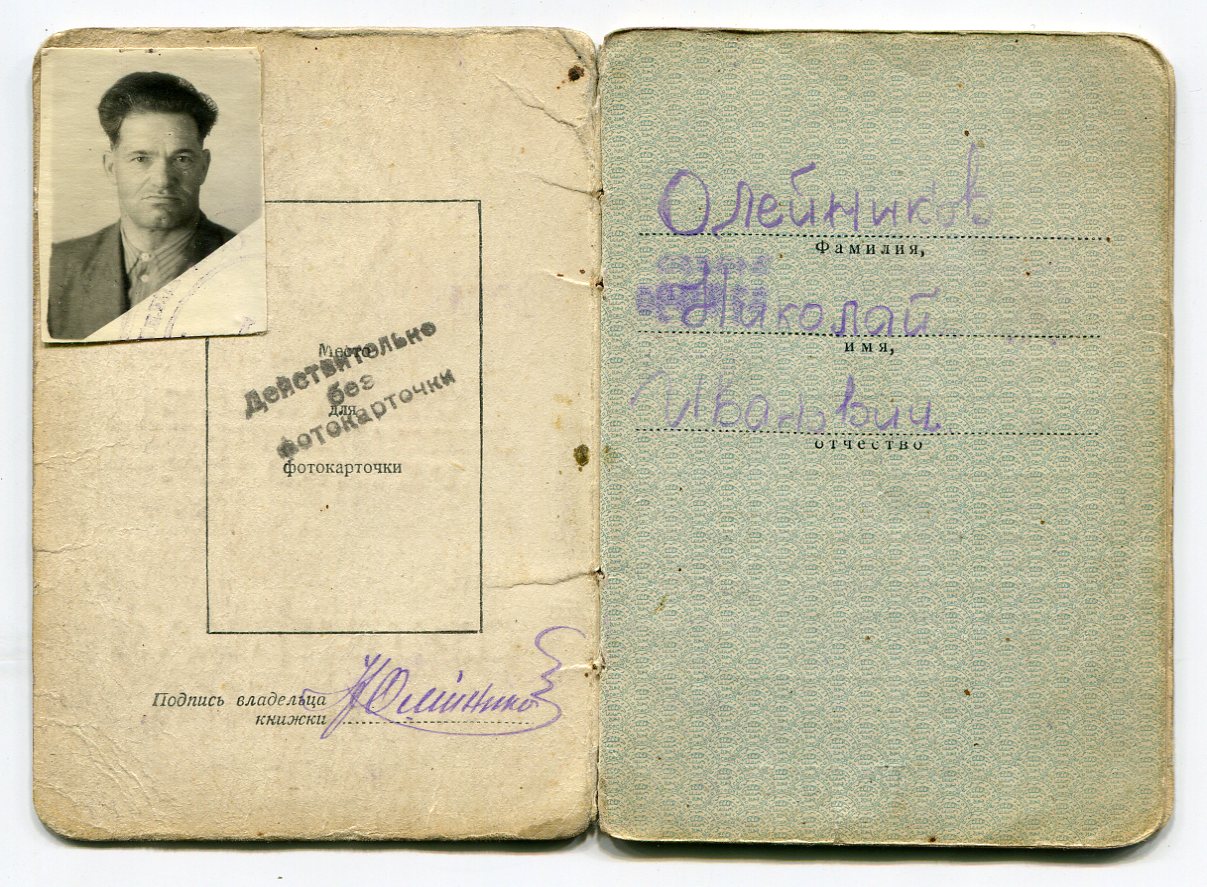 Место
для
фотокарточки
Действительно
без
фотокарточки
Подпись владельца
книжки
Н Олейников
Олейников
Фамилия,
Николай
имя,
Иванович
отчество